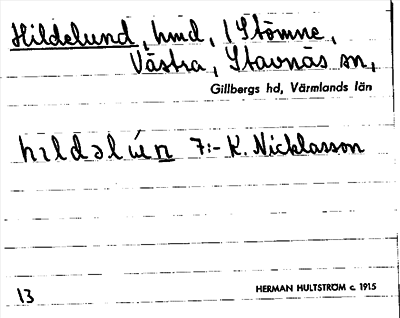 Hildelund, hmd, /Stömne,
Västra, Stavnäs sn,
Gillbergs hd, Värmlands län
hıldəlún 7:- K. Nicklasson
13
HERMAN HULTSTRÖM c. 1915